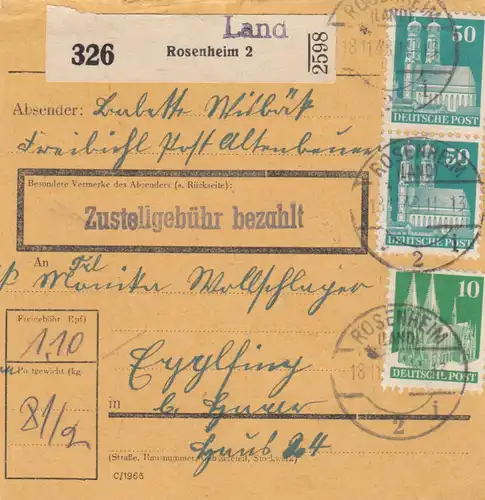 Land
326
Rosenheim 2
2598
Absender: Babette
Freibichl Post Altenbeuern
Besondere Vermerke des Absenders (s. Rückseite):
Zustellgebühr bezahlt
An Frl
Monika Wollschlager
Freigebühr Rpf)
1.10
Postgewicht (kg
8 1/2
Egglfing
in b. Haar
Haus 24
(Straße, Hausnummer, Gebäudeteil, Stockwerk)
C/1966
50
DEUTSCHE POST
50
DEUTSCHE POST
10
DEUTSCHE POST
ROSENHEIM
(LAND)
18.11.48
ROSENHEIM
(LAND)
2
i
ROSENHEIM
(LAND)
18.11
2
i